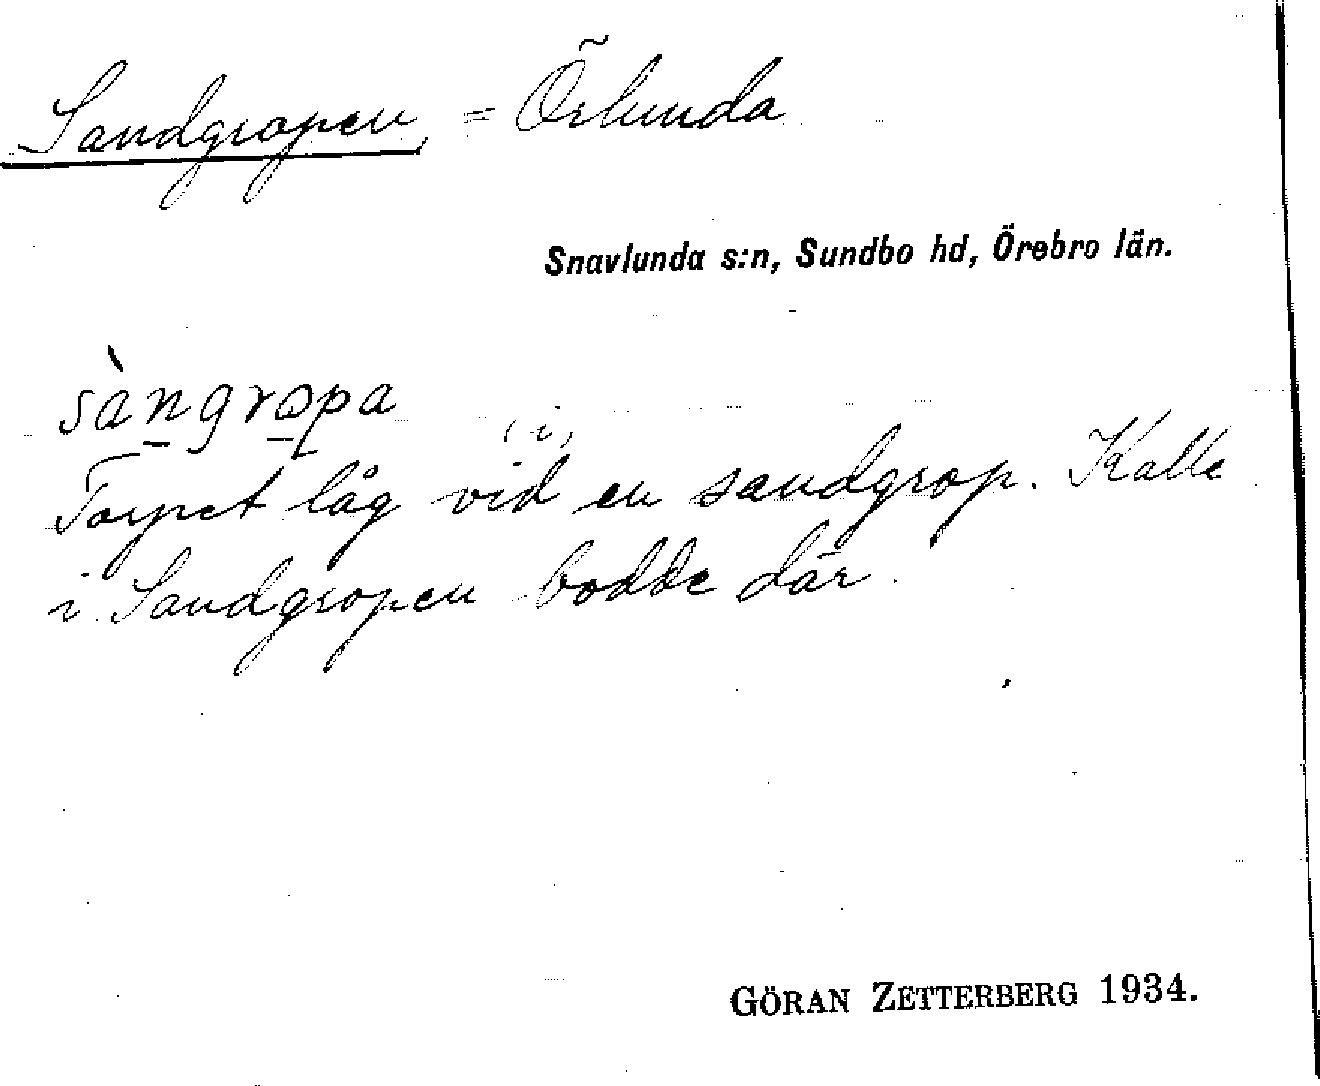 Sandgropen, = Örlunda
Snavlunda s:n, Sundbo hd, Örebro län.
sàn̲gro̲pa
(i)
Torpet låg vid en sandgrop. Kalle
i Sandgropen bodde där.
GÖRAN ZETTERBERG 1934.